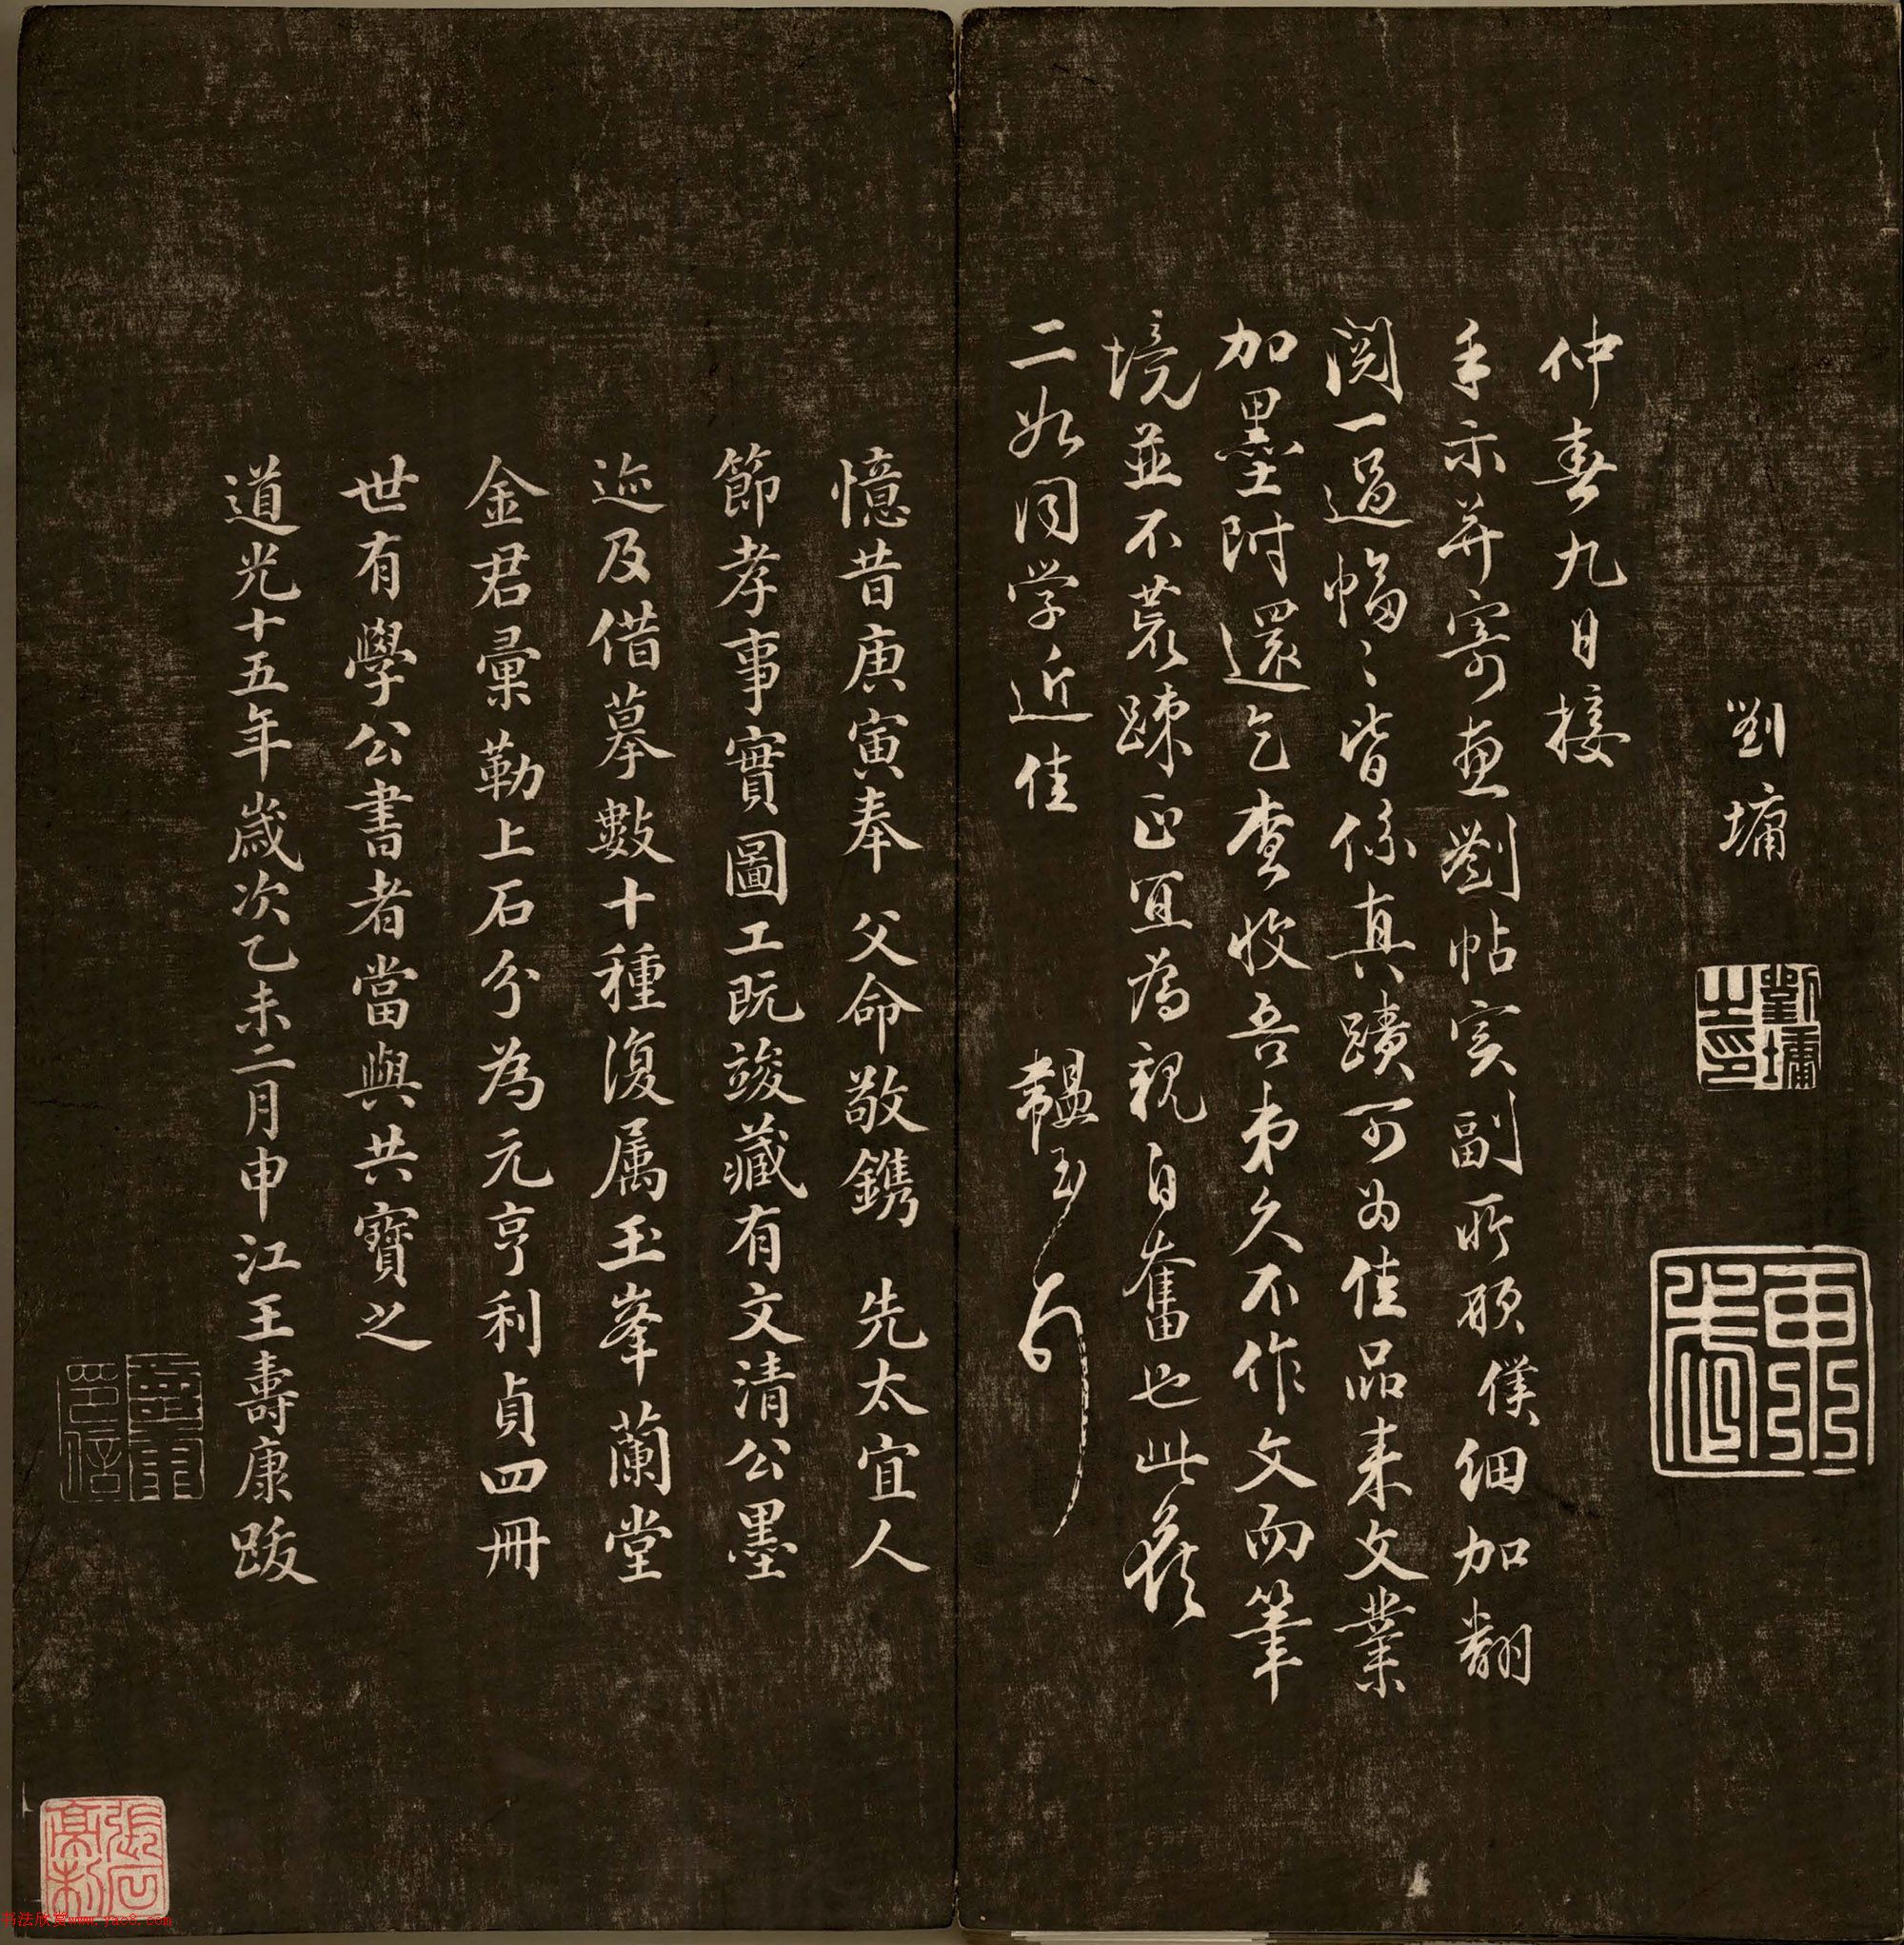 劉墉
劉墉之印
仲春九日接
手示并寄惠劉帖实副所願僕細加翻
閱一過幅〻皆係真蹟可为佳品来文業
加墨附還乞查收吾弟久不作文而筆
境並不荒疎正宜為親自奮也此候
二如同学近佳
韞玉
憶昔庚寅奉 父命敬鐫 先太宜人
節孝事實圖工既竣藏有文清公墨
迹及借摹數十種復属玉峯蘭堂
金君彙勒上石分為元亨利貞四冊
世有學公書者當與共寶之
道光十五年歲次乙未二月申江王壽康跋
书法欣赏www.yac8.com